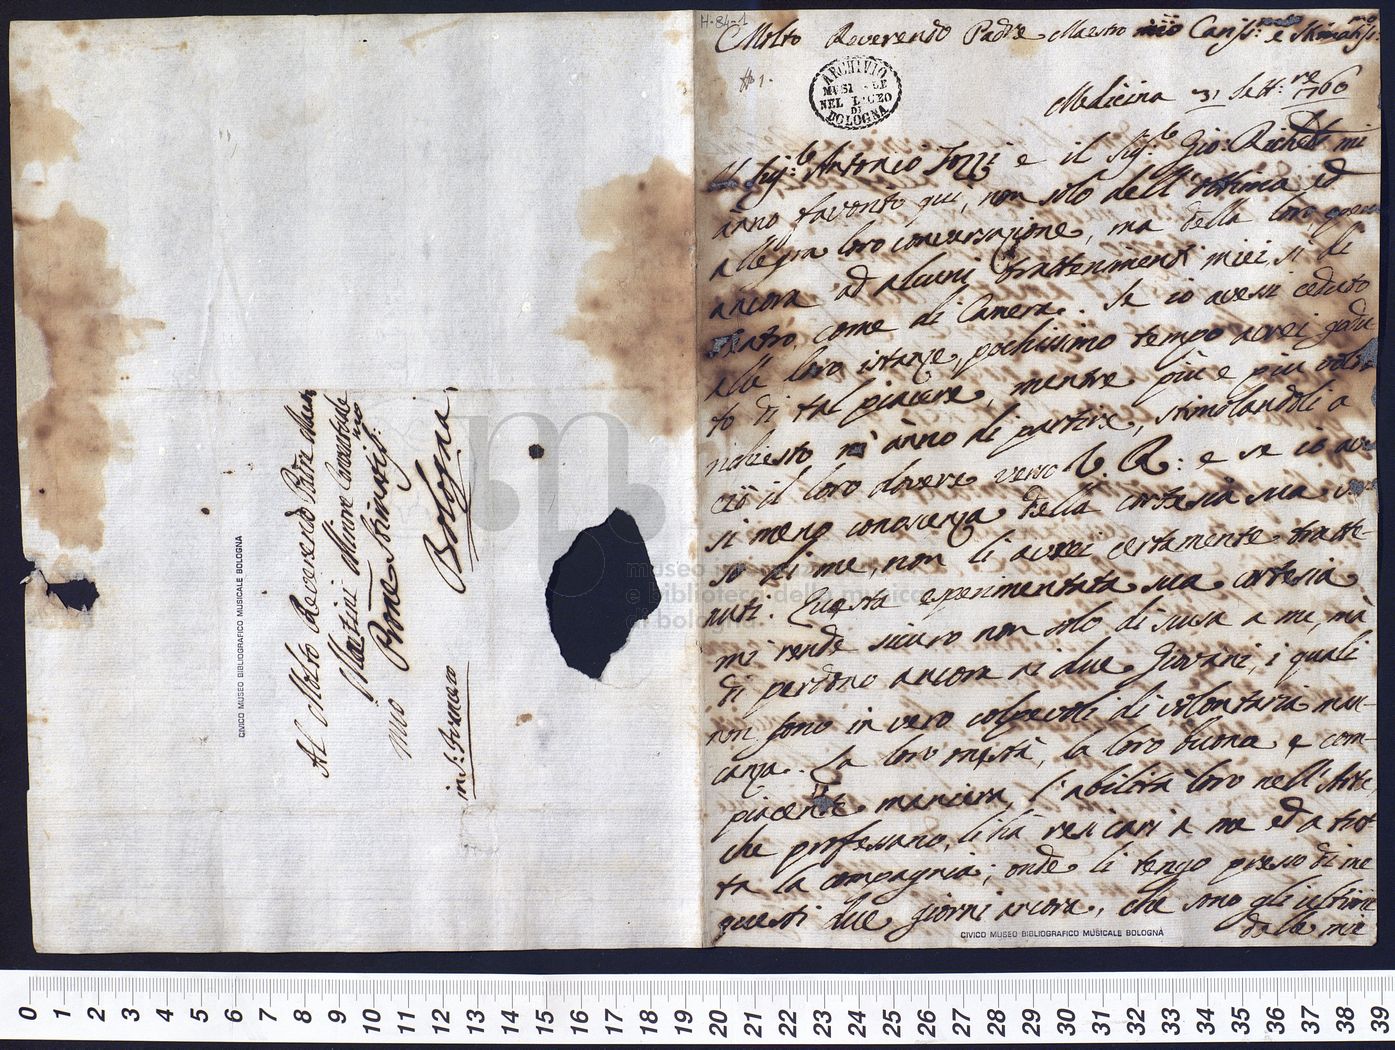 H-84-1
Molto Reverendo Padre Maestro mio Cariss.mo e Stimatiss.mo
N 1.
ARCHIVIO
MUSICALE
NEL LICEO
DI
BOLOGNA
Medicina 31 Sett.re 1760
Il Sig.re Antonio Tozzi e il Sig.re Gio: Richelli mi
ànno favorito quì, non solo dell'ottima ed
allegra loro conversazione, ma della loro
ancora ad alcuni trattenimenti miei, sì di
Teatro, come di Camera. Se io avessi ceduto
alle loro istanze, pochissimo tempo avrei godu-
to di tal piacere, mentre più e più volte
richiesto m'ànno di partire, stimolandoli a
ciò il loro dovere verso V. R: e se io aves-
si meno conoscenza della cortesia sua ver-
so di me, non li avrei certamente tratte-
nuti. Questa esperimentata sua cortesia
mi rende sicuro non solo di scusa a me, mà
di perdono ancora ai due Giovani, i quali
non sono in vero colpevoli di volontaria man-
canza. La loro onestà, la loro buona e com-
piacente maniera, l'abilità loro nell'Arte
che professano, li hà resi cari a me ed a tut-
ta la compagnia; onde li tengo presso di me
questi due giorni ancora, che sono gli ultimi
delle mie
CIVICO MUSEO BIBLIOGRAFICO MUSICALE BOLOGNA
Al Molto Reverendo Padre Maes.
Martini Minore Conventuale
mio Pron̄e Stimatiss:mo
in S: Francesco Bologna
CIVICO MUSEO BIBLIOGRAFICO MUSICALE BOLOGNA
museo internazionale
e biblioteca della musica
di bologna
0 1 2 3 4 5 6 7 8 9 10 11 12 13 14 15 16 17 18 19 20 21 22 23 24 25 26 27 28 29 30 31 32 33 34 35 36 37 38 39